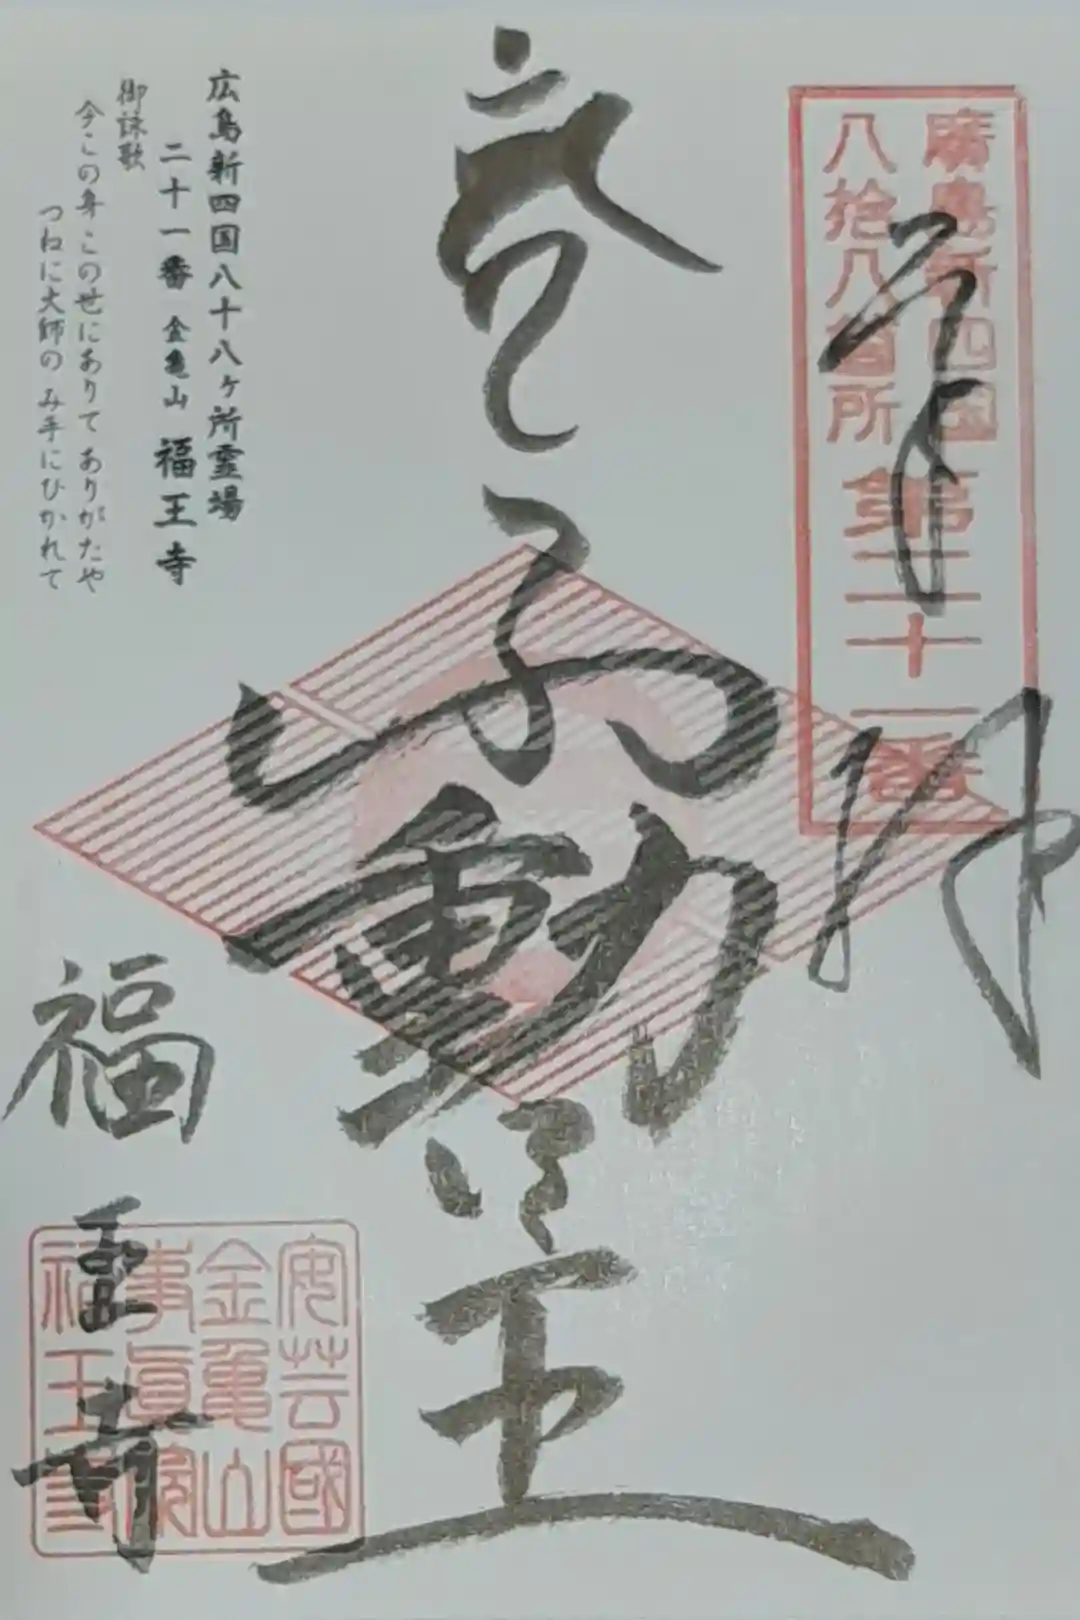 廣島新四国
八拾八箇所
第二十一番
奉拝
不動明王
広島新四国八十八ヶ所霊場
二十一番 金亀山 福王寺
御詠歌
今この身この世にありて ありがたや
つねに大師の み手にひかれて
福王寺
安芸國
金亀山
事真院
福王寺